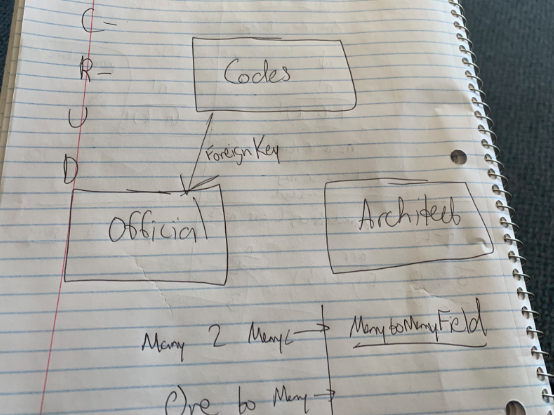 C-
R-
Codes
U
Foreign Key
D
Official
Architect
Many 2 Many
ManytoManyField
One to Many